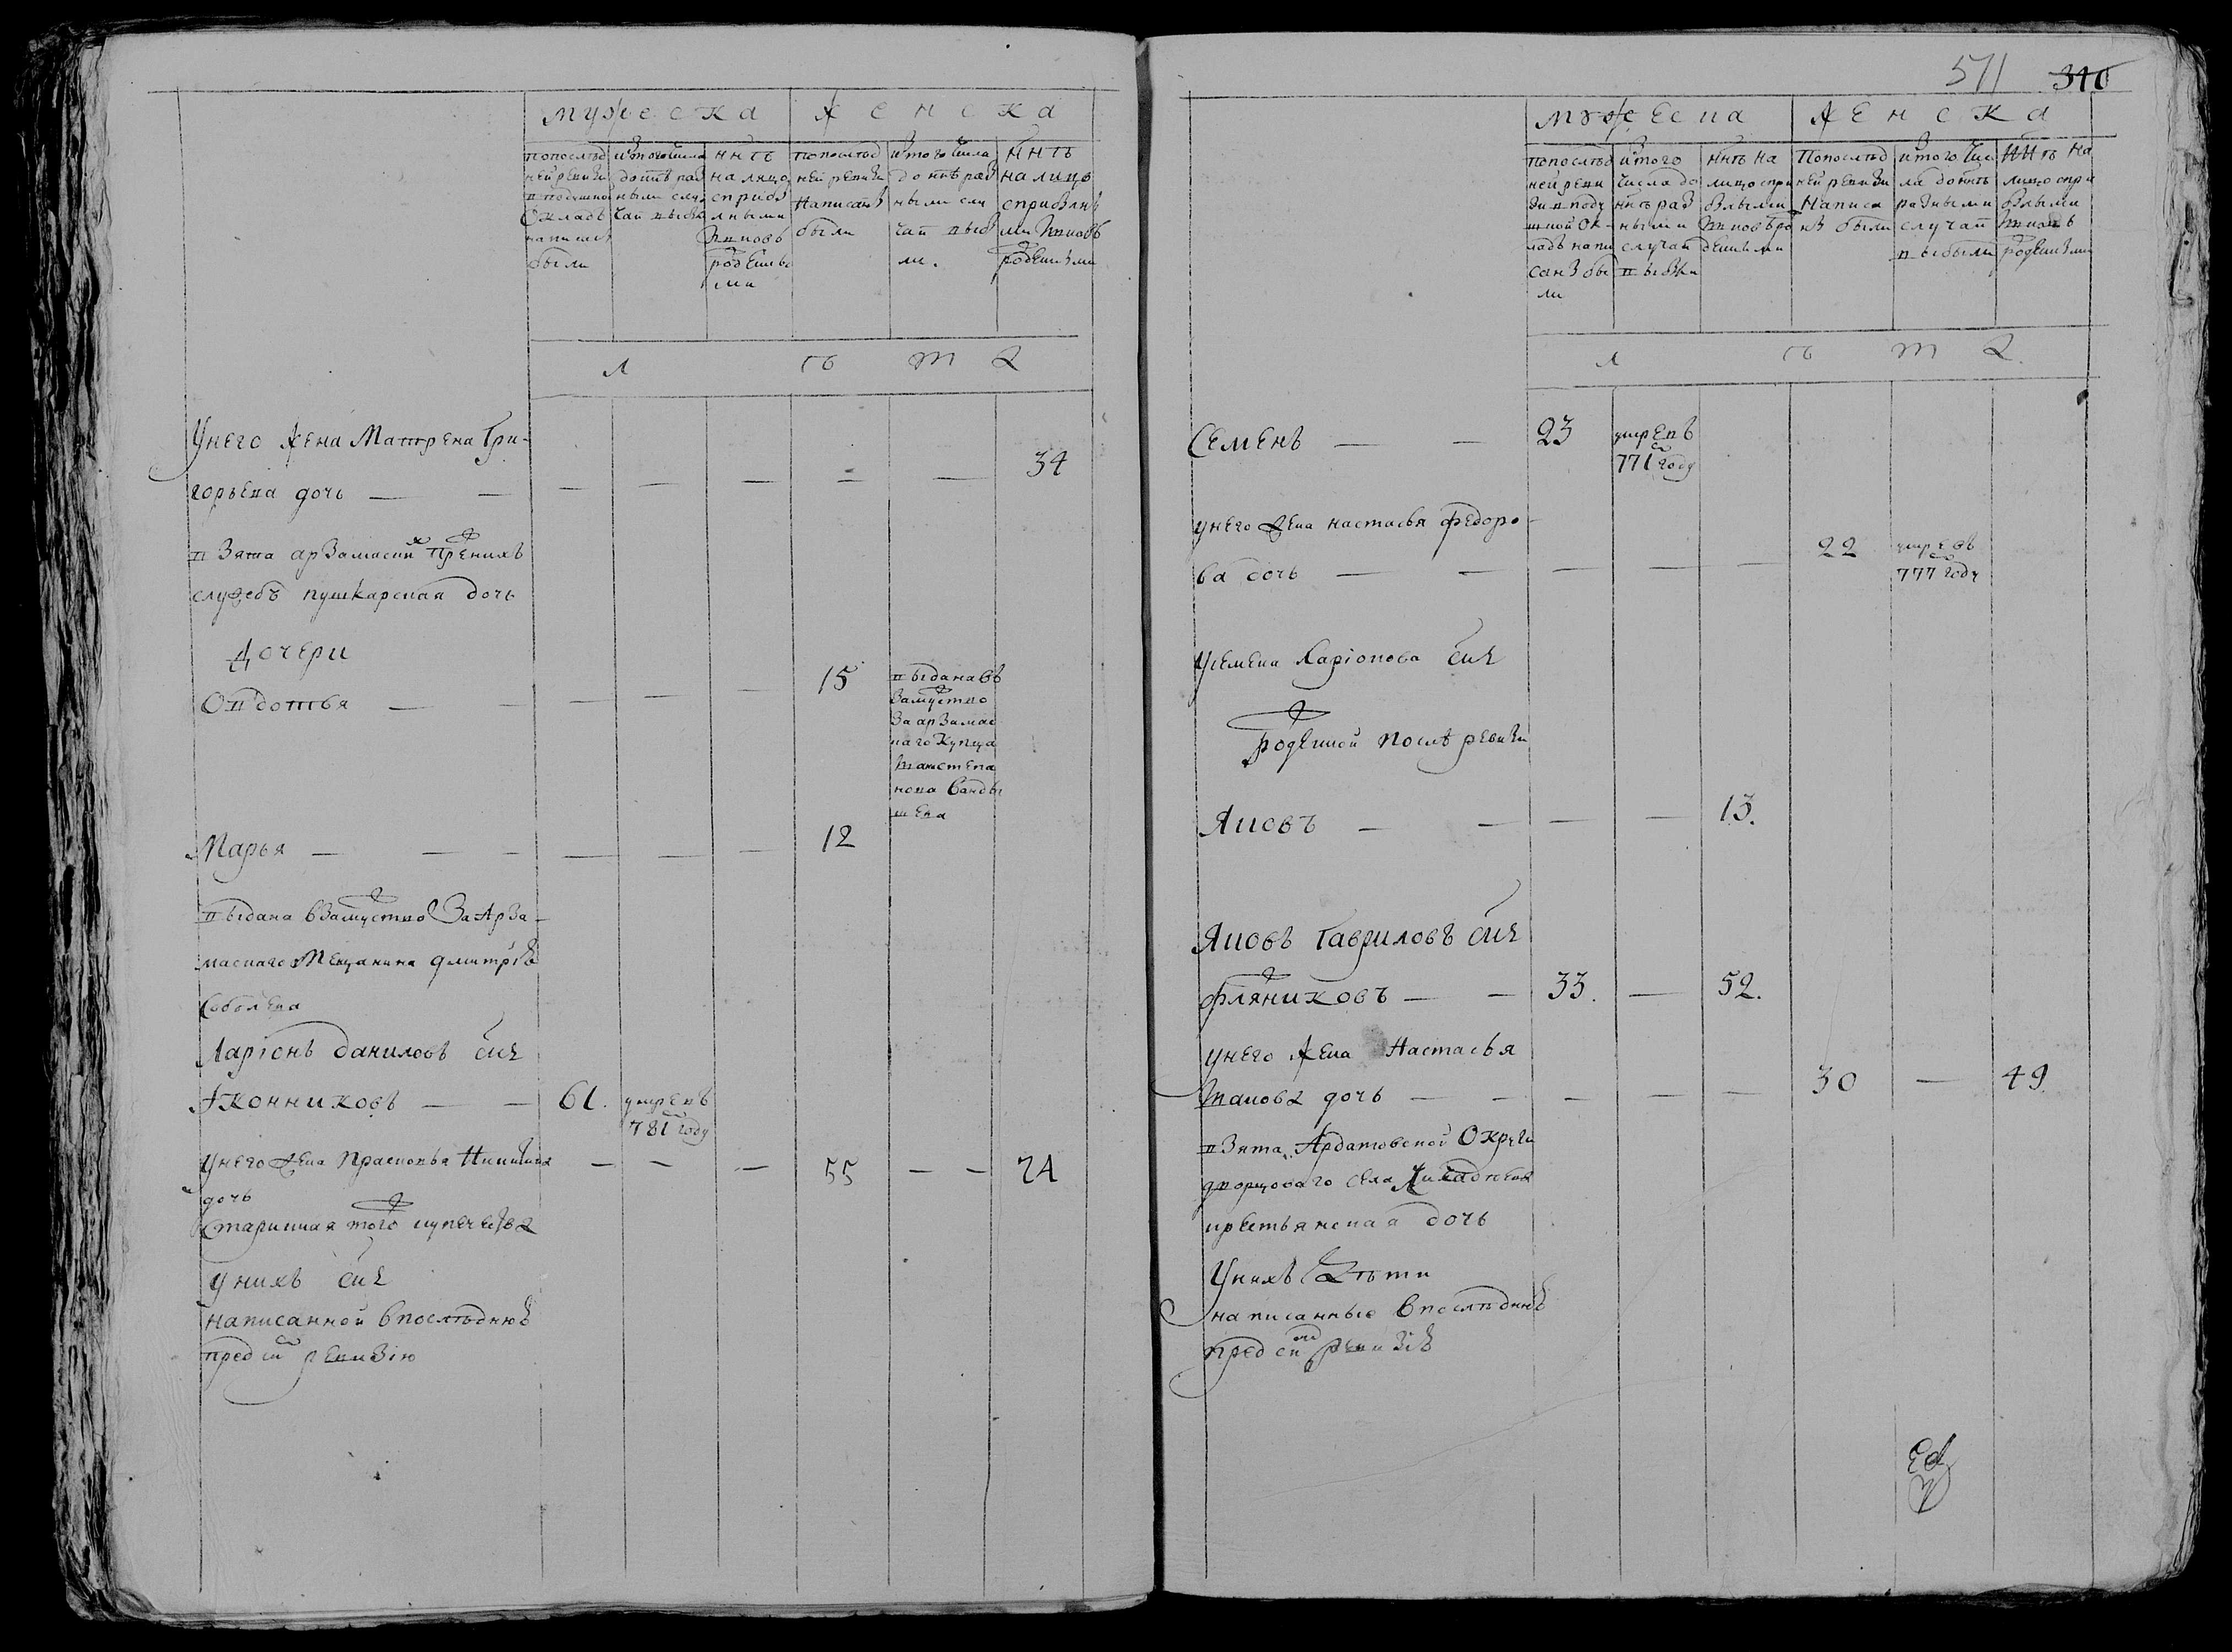 мужеска
женска
по послед
ней ревизи
в подушно
Окладъ
написан
были
ис того числа
до нне раз
ными слу
чаи выбы
ннѣ
на лицо
с прибы
лными
и вновь
рожденны
ми
по послед
ней ревизи
Написаны
были
ис того числа
до ннѣ раз
ными слу
чаи выбы
ли.
ннѣ
на лицо
с прибылны
ми и вновь
рожденными
л ѣ т а
У него жена Матрена Гри-
горьева дочь — — — — — — — 34
взята арзамаских прежнихъ
служебъ пушкарская дочь
Дочери
Овдотья — — — — — 15
выдана въ
замужство
за арзамас
каго купца
Марья — — — — — — 12
выдана в замужство За Арза-
маскаго Мещанина дмитрея
Соболева
Ларіонъ даниловъ снъ
Иконниковъ — — 61. умре въ
781 году
У него жена Прасковья Никитина — — — 55 — — 74
дочь
Старинная того купечества
У нихъ снъ
написанной в последнюю
пред сей ревизію
571 340
мужеска
женска
по послед
ней реви
зи в поду
шной ок-
ладъ напи
саны бы
ли
ис того
числа до
ннѣ раз
ными
случаи
выбыли
ннѣ на
лицо с при
былыми
и вновь ро
жденными
По послед
ней ревизи
Написа
ны были
ис того чис
ла до ннѣ
разными
случаи
выбыли
ннѣ на
лицо с при
былыми
и вновь
рожденными
л ѣ т а
Семенъ — — 23 умре въ
771 году
у него жена настасья федоро-
ва дочь — — — — — 22 умре въ
777 году
У семена Ларіонова снъ
рожденной послѣ ревизи
Яковъ — — — — 13.
Яковъ Гавриловъ снъ
Фляжниковъ — — 33. — 52.
у него жена Настасья
Иванова дочь — — — — — 30 — 49.
взята Ардатовской Округи
дворцоваго села
крестьянская дочь
У нихъ Дѣти
написанные в последней
пред сей ревизіи